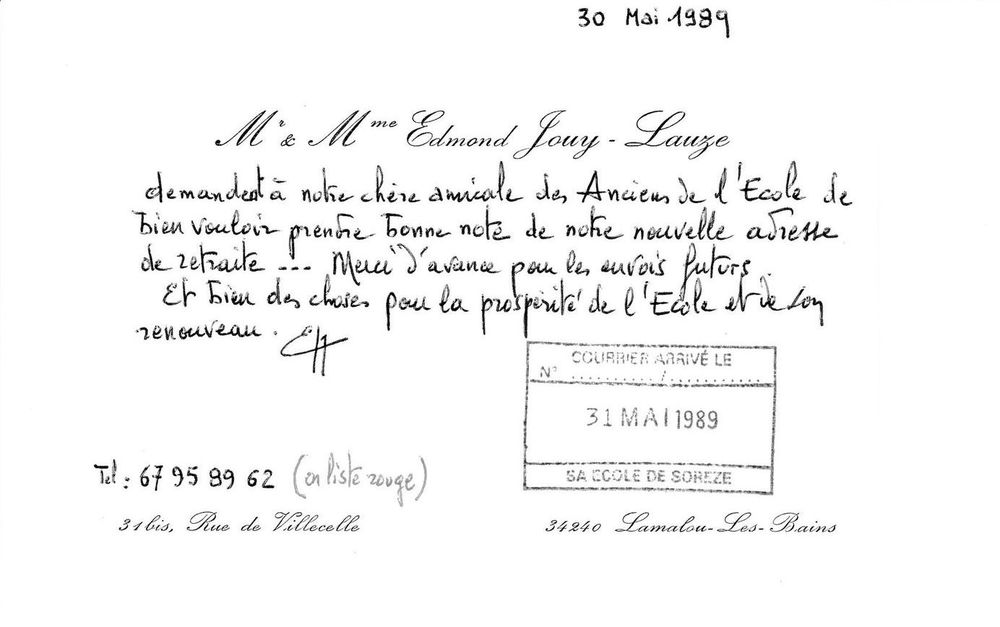 30 Mai 1989
Mr & Mme Edmond Jouy - Lauze
demandent à notre chère amicale des Anciens de l'Ecole de
bien vouloir prendre bonne note de notre nouvelle adresse
de retraite --- Merci d'avance pour les envois futurs.
Et bien des choses pour la prospérité de l'Ecole et de son
renouveau.
COURRIER ARRIVÉ LE
N° ........../..........
31 MAI 1989
SA ECOLE DE SOREZE
Tel : 67 95 89 62 (en liste rouge)
31bis, Rue de Villecelle
34240 Lamalou-Les-Bains